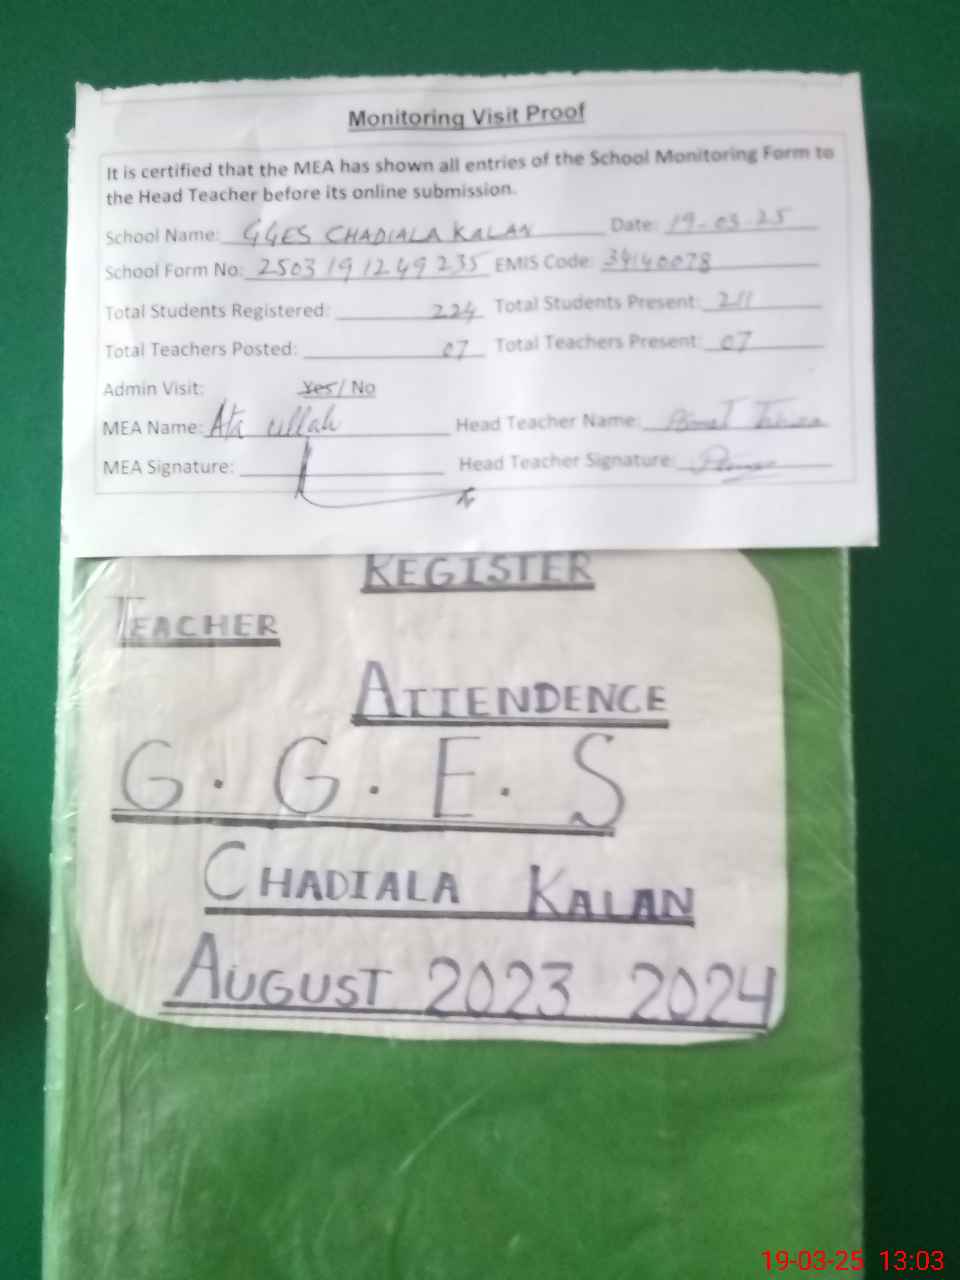 Monitoring Visit Proof
It is certified that the MEA has shown all entries of the School Monitoring Form to
the Head Teacher before its online submission.
School Name: GGES CHADIALA KALAN Date: 19-03-25
School Form No: 250319124923 5 EMIS Code: 34140078
Total Students Registered: 224 Total Students Present: 211
Total Teachers Posted: 07 Total Teachers Present: 07
Admin Visit: Yes/ No
MEA Name: Ata ullah Head Teacher Name:
MEA Signature: Head Teacher Signature:
REGISTER
TEACHER
ATTENDENCE
G . G . E . S
CHADIALA KALAN
AUGUST 2023 2024
19-03-25 13:03